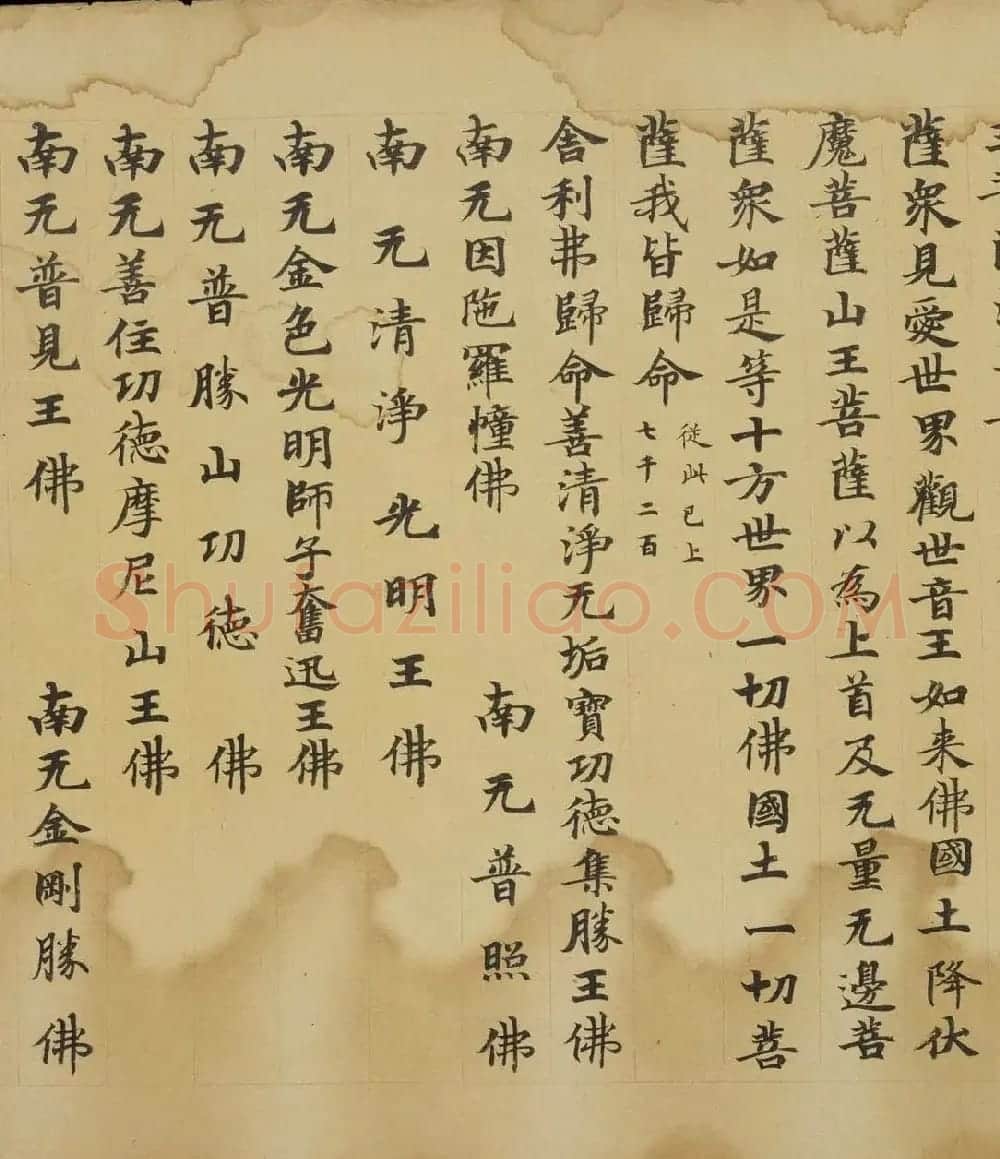 薩衆見愛世界觀世音王如来佛國土降伏
魔菩薩山王菩薩以為上首及无量无邊菩
薩衆如是等十方世界一切佛國土一切菩
薩我皆歸命
從此已上
七千二百
舎利弗歸命善清淨无垢寶功德集勝王佛
南无因陁羅幢佛 南无普照佛
南无清淨光明王佛
南无金色光明師子奮迅王佛
南无普勝山功徳佛
南无善住功德摩尼山王佛
南无普見王佛 南无金剛勝佛
Shufaziliao.COM